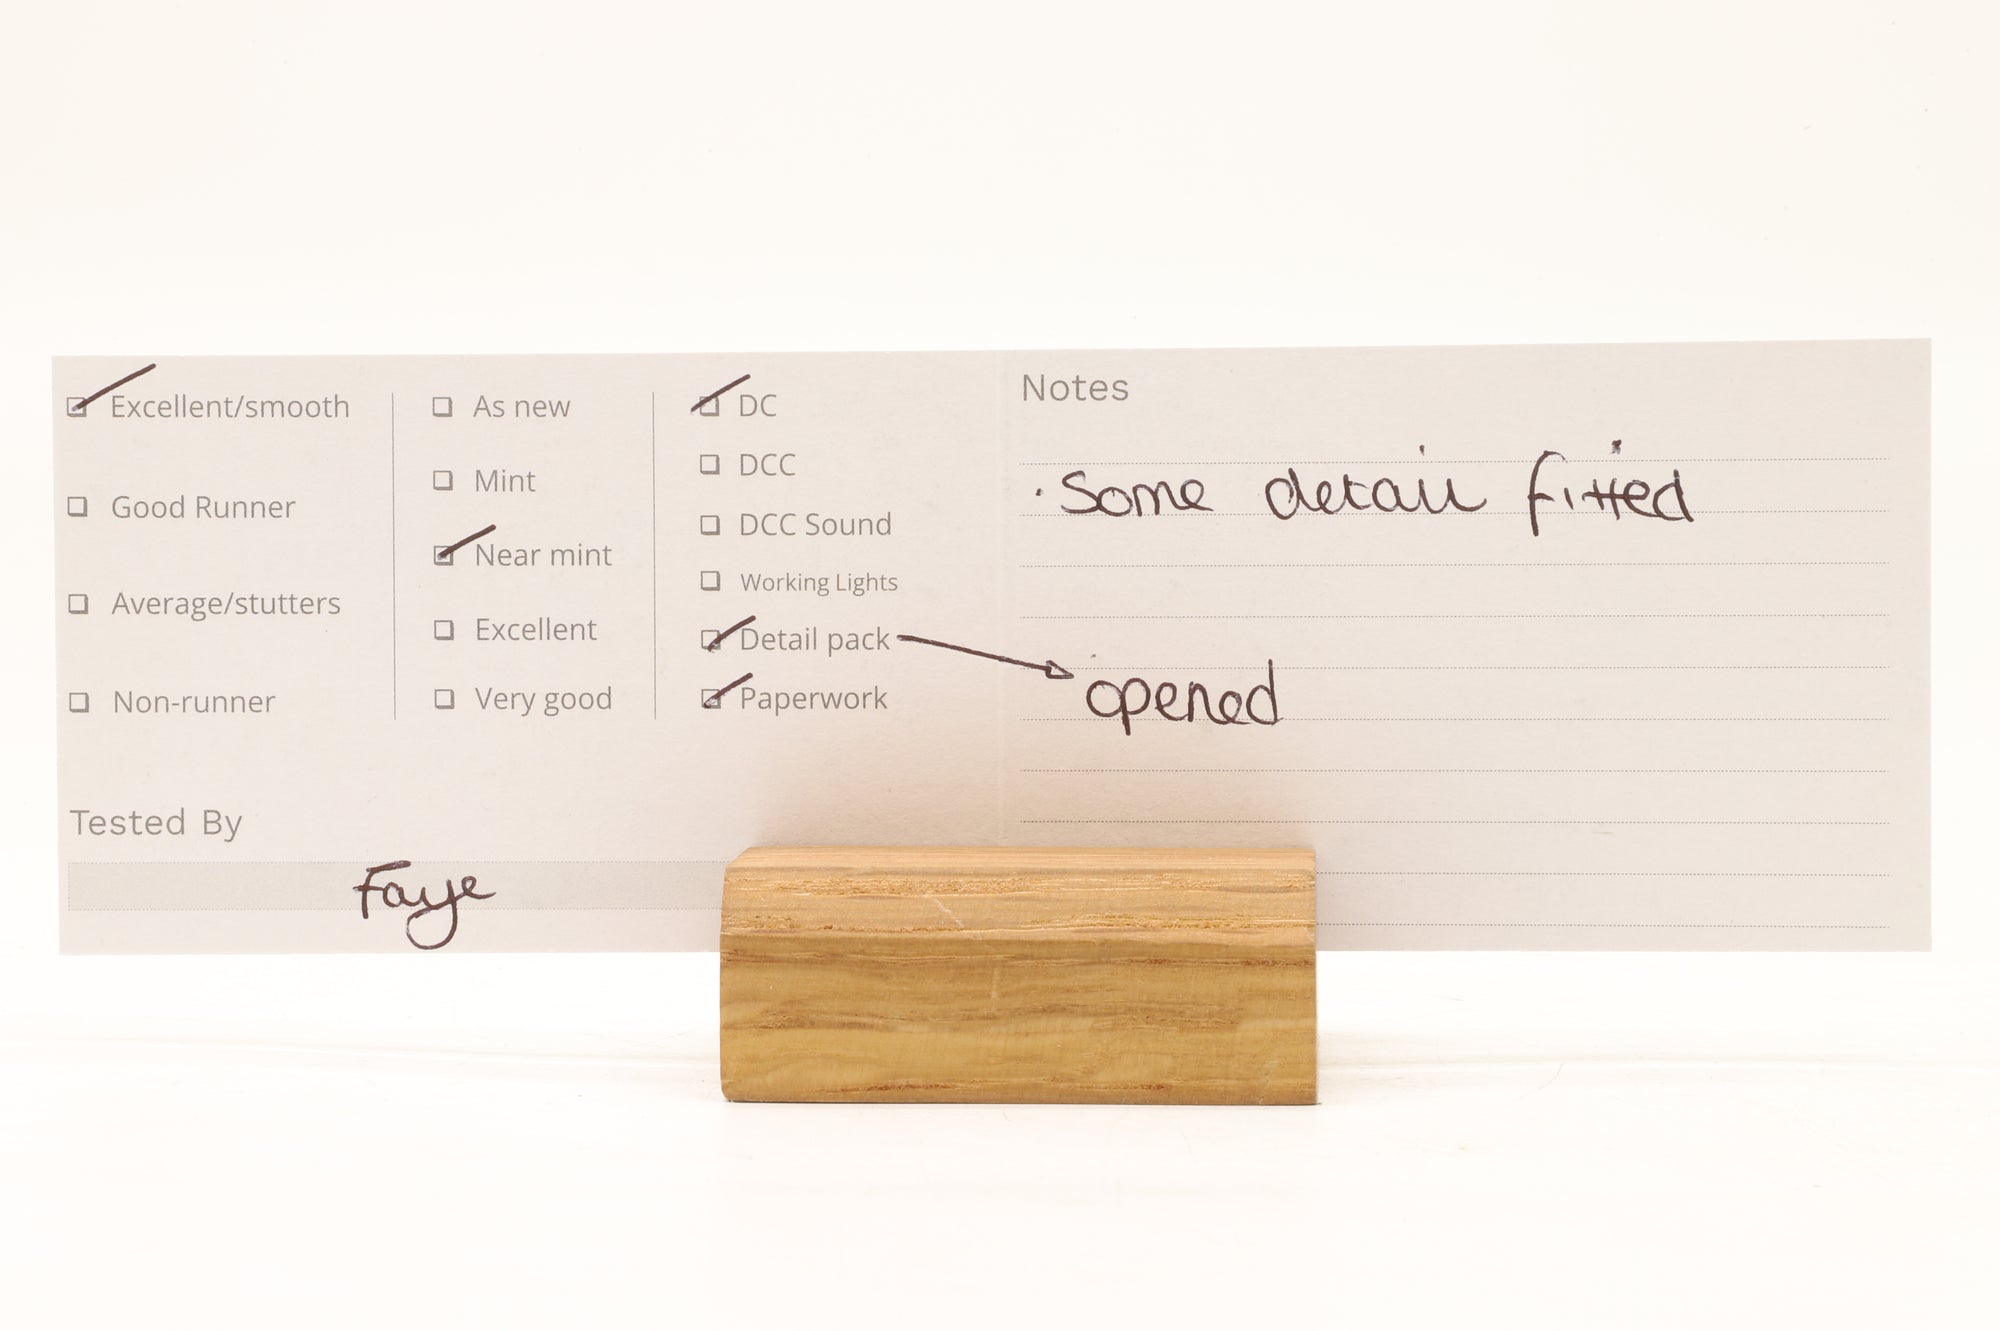 Excellent/smooth
Good Runner
Average/stutters
Non-runner
As new
Mint
Near mint
Excellent
Very good
DC
DCC
DCC Sound
Working Lights
Detail pack
Paperwork
Tested By
Faye
Notes
· Some detail fitted
opened